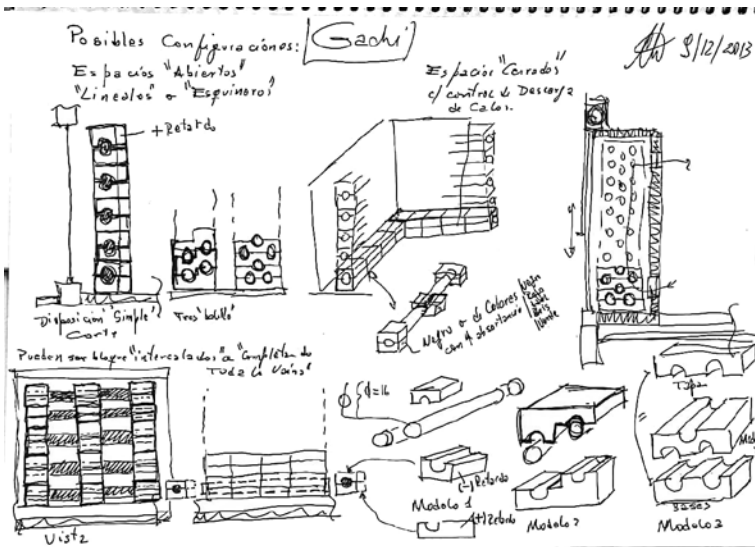 Posibles Configuraciones:
Gachi
9/12/2013
Espacios "Abiertos"
"Lineales" o "Esquineros"
Espacios "Cerrados"
c/ control de Descarga
de Calor.
+Retardo
Disposición "Simple"
Corte
Tres bolillo
Negro o de Colores
con ↑ absortancia
Pueden ser bloque "intercalados" o "Completando
Toda la
Vista
d=16
(-)Retardo
Modulo 1
(+)Retardo
Modulo 2
Tapa
Bases
Modulo 3